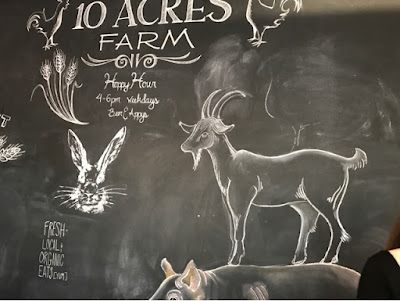 10 ACRES
FARM
Happy Hour
4-6pm weekdays
FRESH-
LOCAL+
ORGANIC
EATS